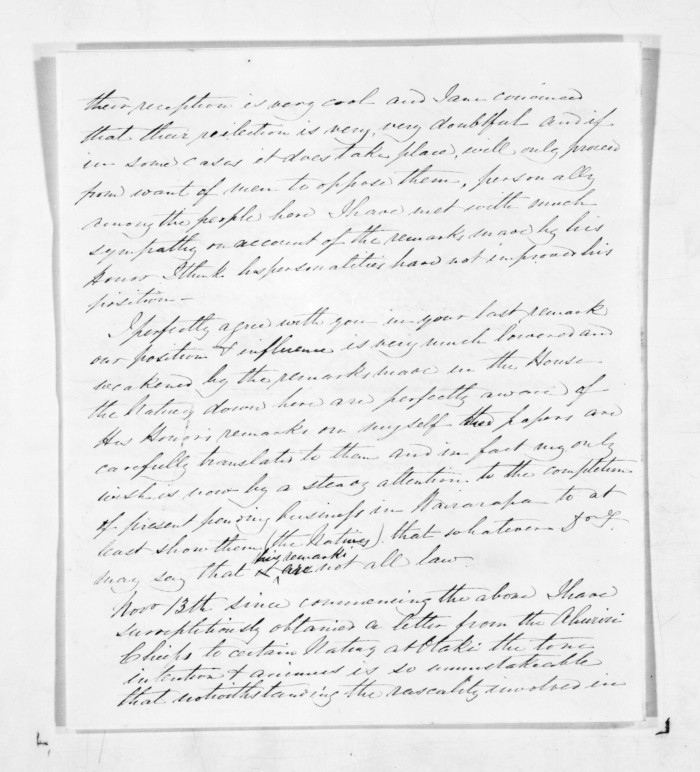 their reception is very cool and I am convinced
that their reilection is very, very doubtful and if
in some cases it does take place, will only proceed
from want of men to oppose them, personally
among the people here I have met with much
sympathy on account of the remarks made by his
Honor I think his personalities have not improved his
position -
I perfectly agree with you in your last remark
our position & influence is very much lowered and
weakened by the remarks made in the House
the Natives down here are perfectly aware of
His Honors remarks on myself the papers are
carefully translated to them and in fact my only
wish is now by a steady attention to the completion
of present pending business in Wairarapa to at
least show them (the Natives) that whatever
may say that his remarks are not all law.
Novr 13th since commencing the above I have
surreptitiously obtained a letter from the Ahuriri
Chiefs to certain Natives at the tone
intention & is so unmistakeable
that notwithstanding the rascality involved in